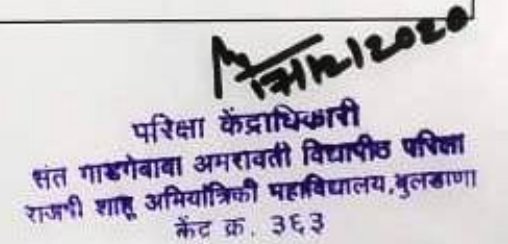 17/12/2020
परिक्षा केंद्राधिकारी
संत गाडगेबाबा अमरावती विद्यापीठ परिक्षा
राजर्षी शाहू अभियांत्रिकी महाविद्यालय,बुलडाणा
केंद्र क्र. ३६३